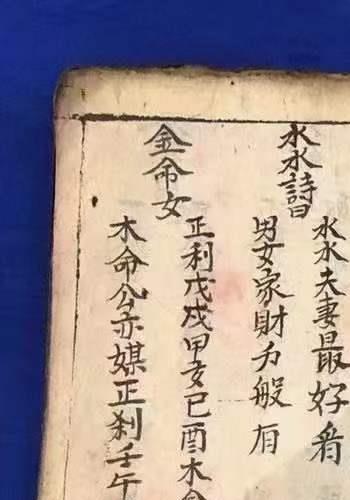 水水詩曰
水水夫妻最好看
男女家財万般有
金命女
正利戊戌甲亥已酉木命
木命公亦媒正刹壬午